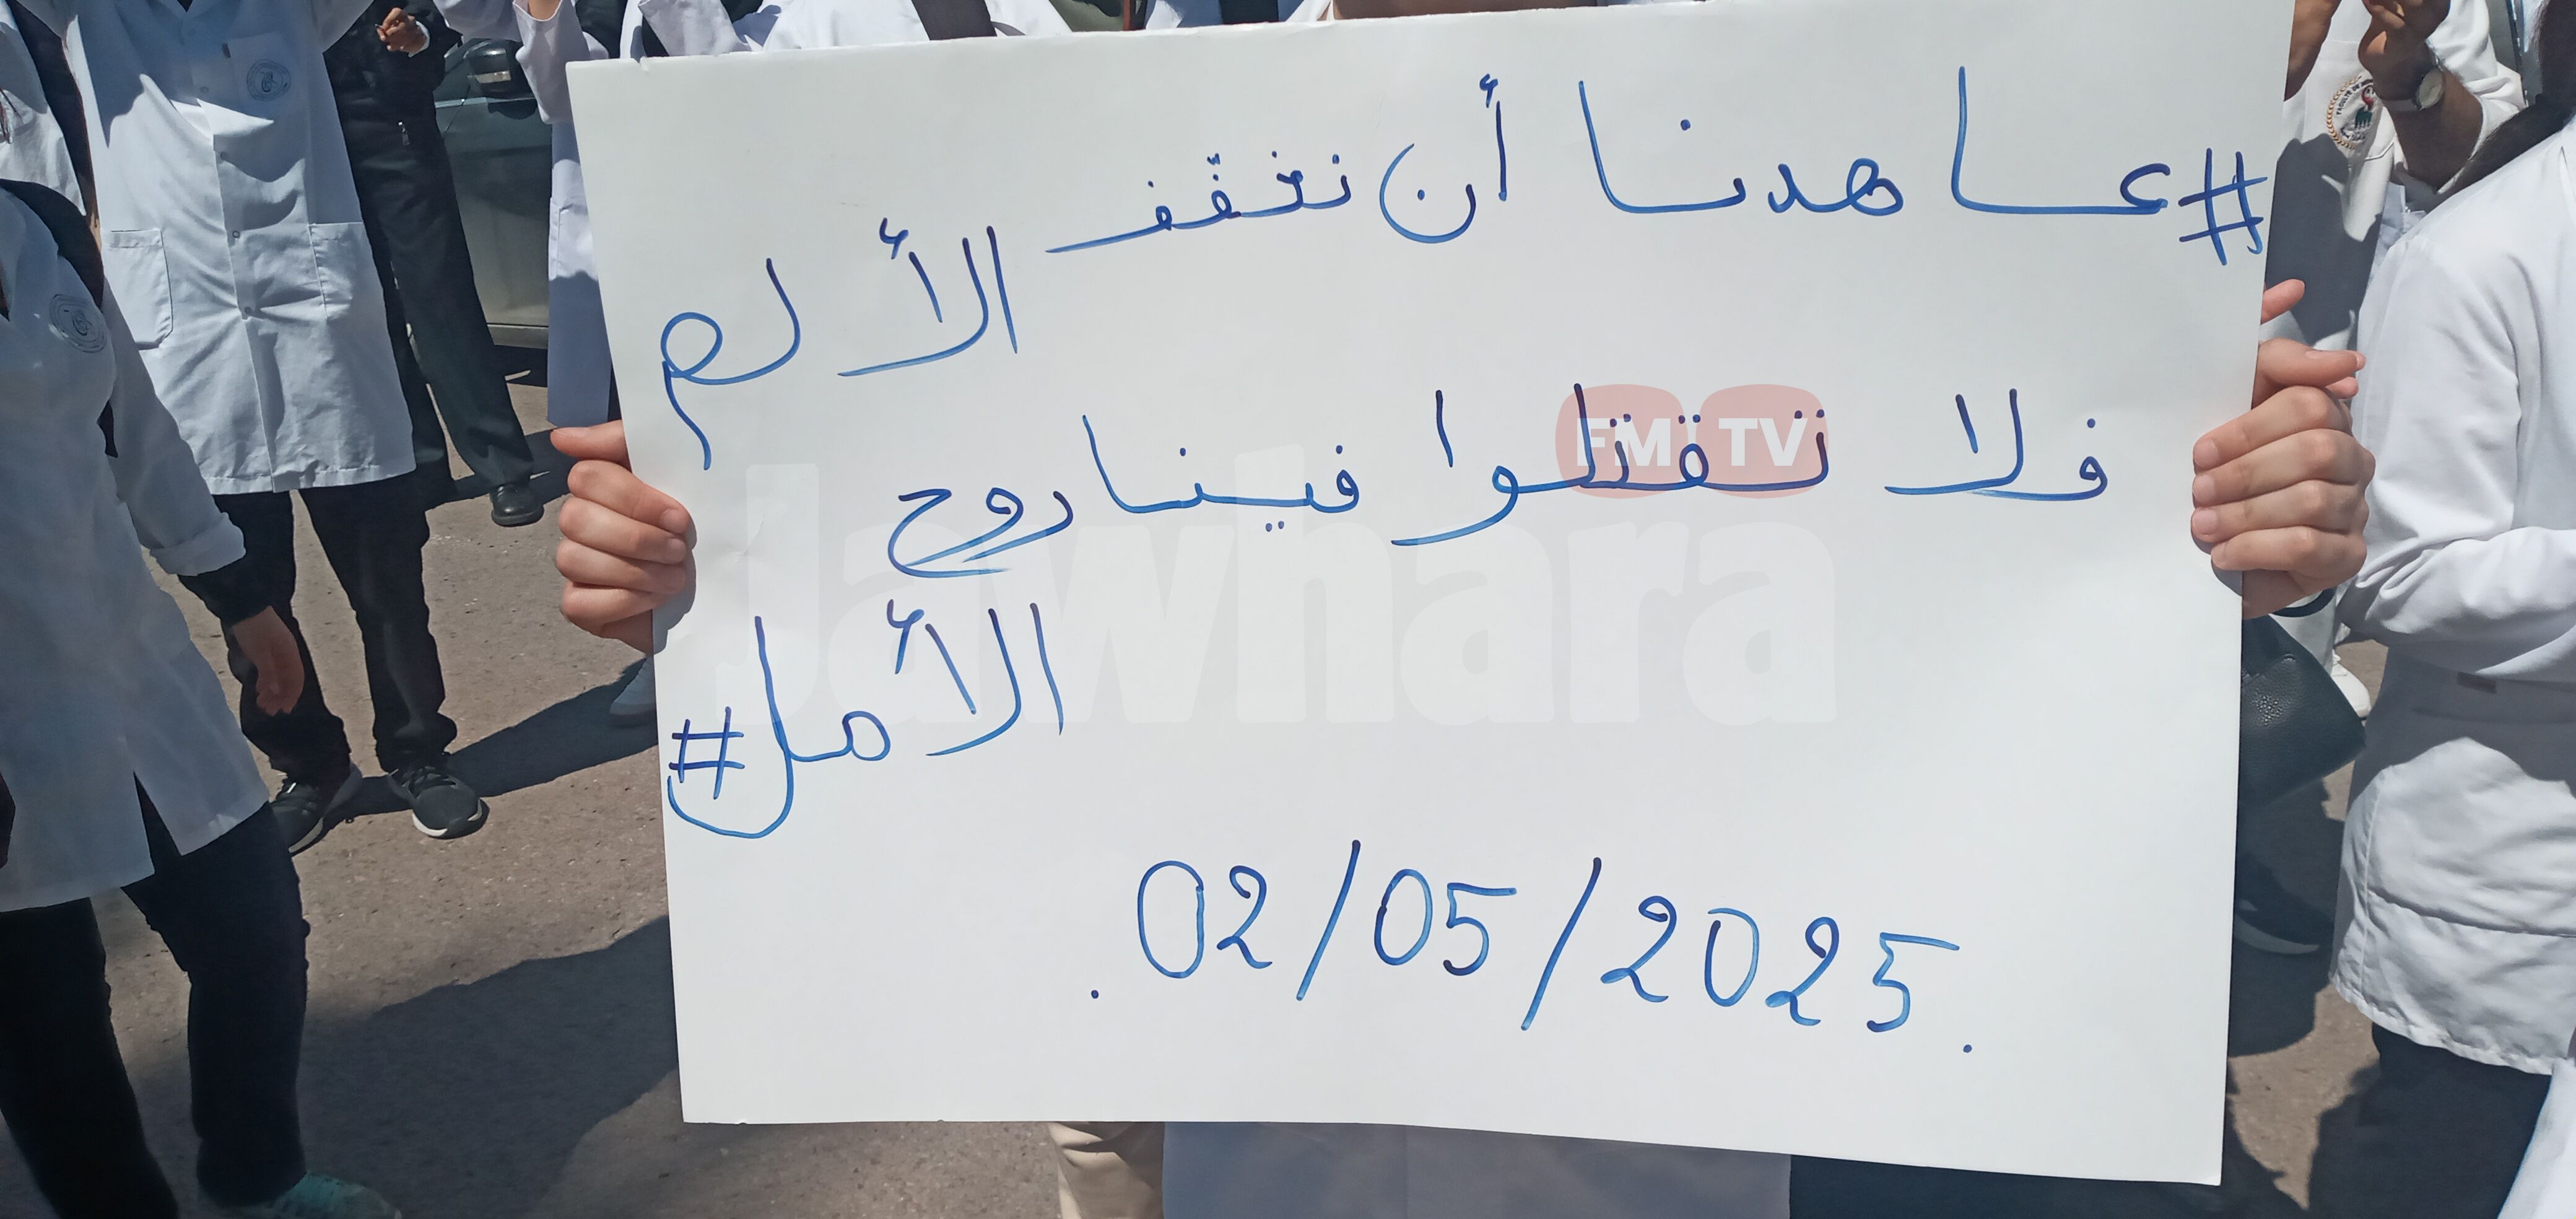 #عاهدنا أن نخفّف الألم
فلا تقتلوا فينا روح
الأمل#
02/05/2025.
FM TV
Jawhara